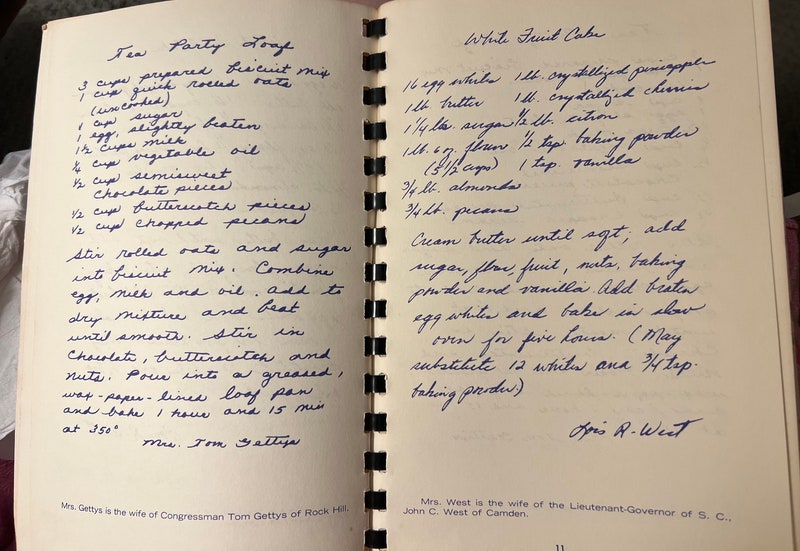 Tea Party Loaf
3 cups prepared biscuit mix
1 cup quick rolled oats
(uncooked)
1 cup sugar
1 egg, slightly beaten
1½ cups milk
¼ cup vegetable oil
½ cup semisweet
chocolate pieces
½ cup butterscotch pieces
½ cup chopped pecans
Stir rolled oats and sugar
into biscuit mix. Combine
egg, milk and oil. add to
dry mixture and beat
until smooth. Stir in
Chocolate, butterscotch and
nuts. Pour into a greased,
wax-paper-lined loaf pan
and bake 1 hour and 15 min
at 350°
Mrs. Tom Gettys
Mrs. Gettys is the wife of Congressman Tom Gettys of Rock Hill.
White Fruit Cake
16 egg whites 1 lb. crystallized pineapple
1 lb. butter 1 lb. crystallized cherries
1¼ lbs. sugar ½ lb. citron
1 lb. 6 oz. flour ½ tsp baking powder
(5½ cups) 1 tsp. vanilla
¾ lb. almonds
¾ lb. pecans
Cream butter until soft; add
sugar, flour, fruit, nuts, baking
powder and vanilla. Add beaten
egg whites and bake in slow
oven for five hours. (May
substitute 12 whites and ¾ tsp.
baking powder.)
Lois R. West
Mrs. West is the wife of the Lieutenant-Governor of S. C.,
John C. West of Camden.
11